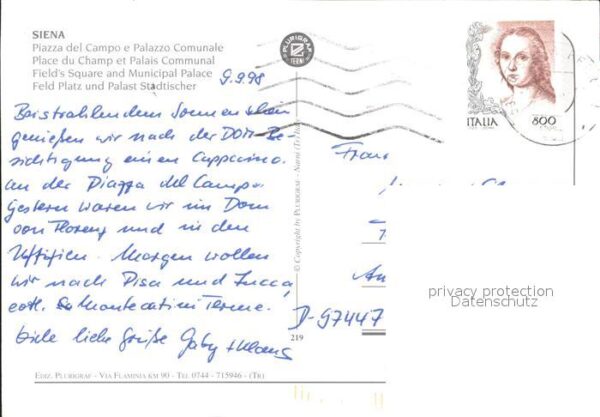 SIENA
Piazza del Campo e Palazzo Comunale
Place du Champ et Palais Communal
Field's Square and Municipal Palace
Feld Platz und Palast Stadtischer
9.9.98
Bei strahlendem Sonnenschein
genießen wir nach der DOM-Be-
sichtigung einen Cappucino
an der Piazza del Campo.
Gestern waren wir im Dom
von Florenz und in den
Uffizien. Morgen wollen
wir nach Pisa und Lucca,
evtl. Montecatini Terme.
Viele liebe Grüße Gaby + Klaus
PLURIGRAF
TERNI
© Copyright by PLURIGRAF - Narni (Tr) Italia
219
ITALIA
800
Frau
D-97447
privacy protection
Datenschutz
EDIZ. PLURIGRAF - VIA FLAMINIA KM 90 - TEL 0744 - 715946 - (TR)